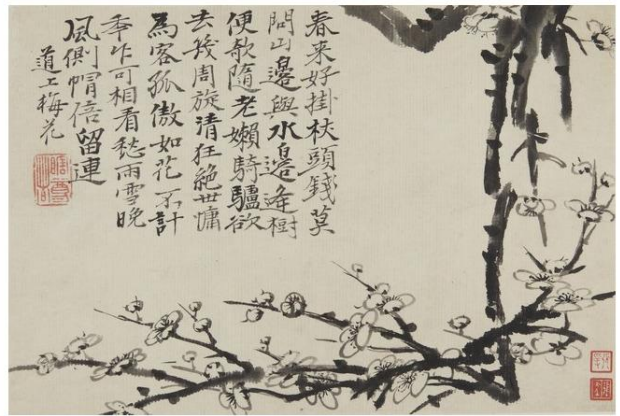 春来好掛杖頭錢莫
問山邊與水邊逢樹
便歌隨老嬾騎驢欲
去幾周旋清狂絕世慵
為客孤傲如花不計
年乍可相看愁雨雪晚
風側帽倍留連
道上梅花